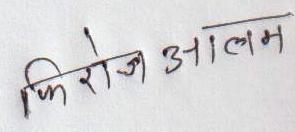 फिरोज आलम